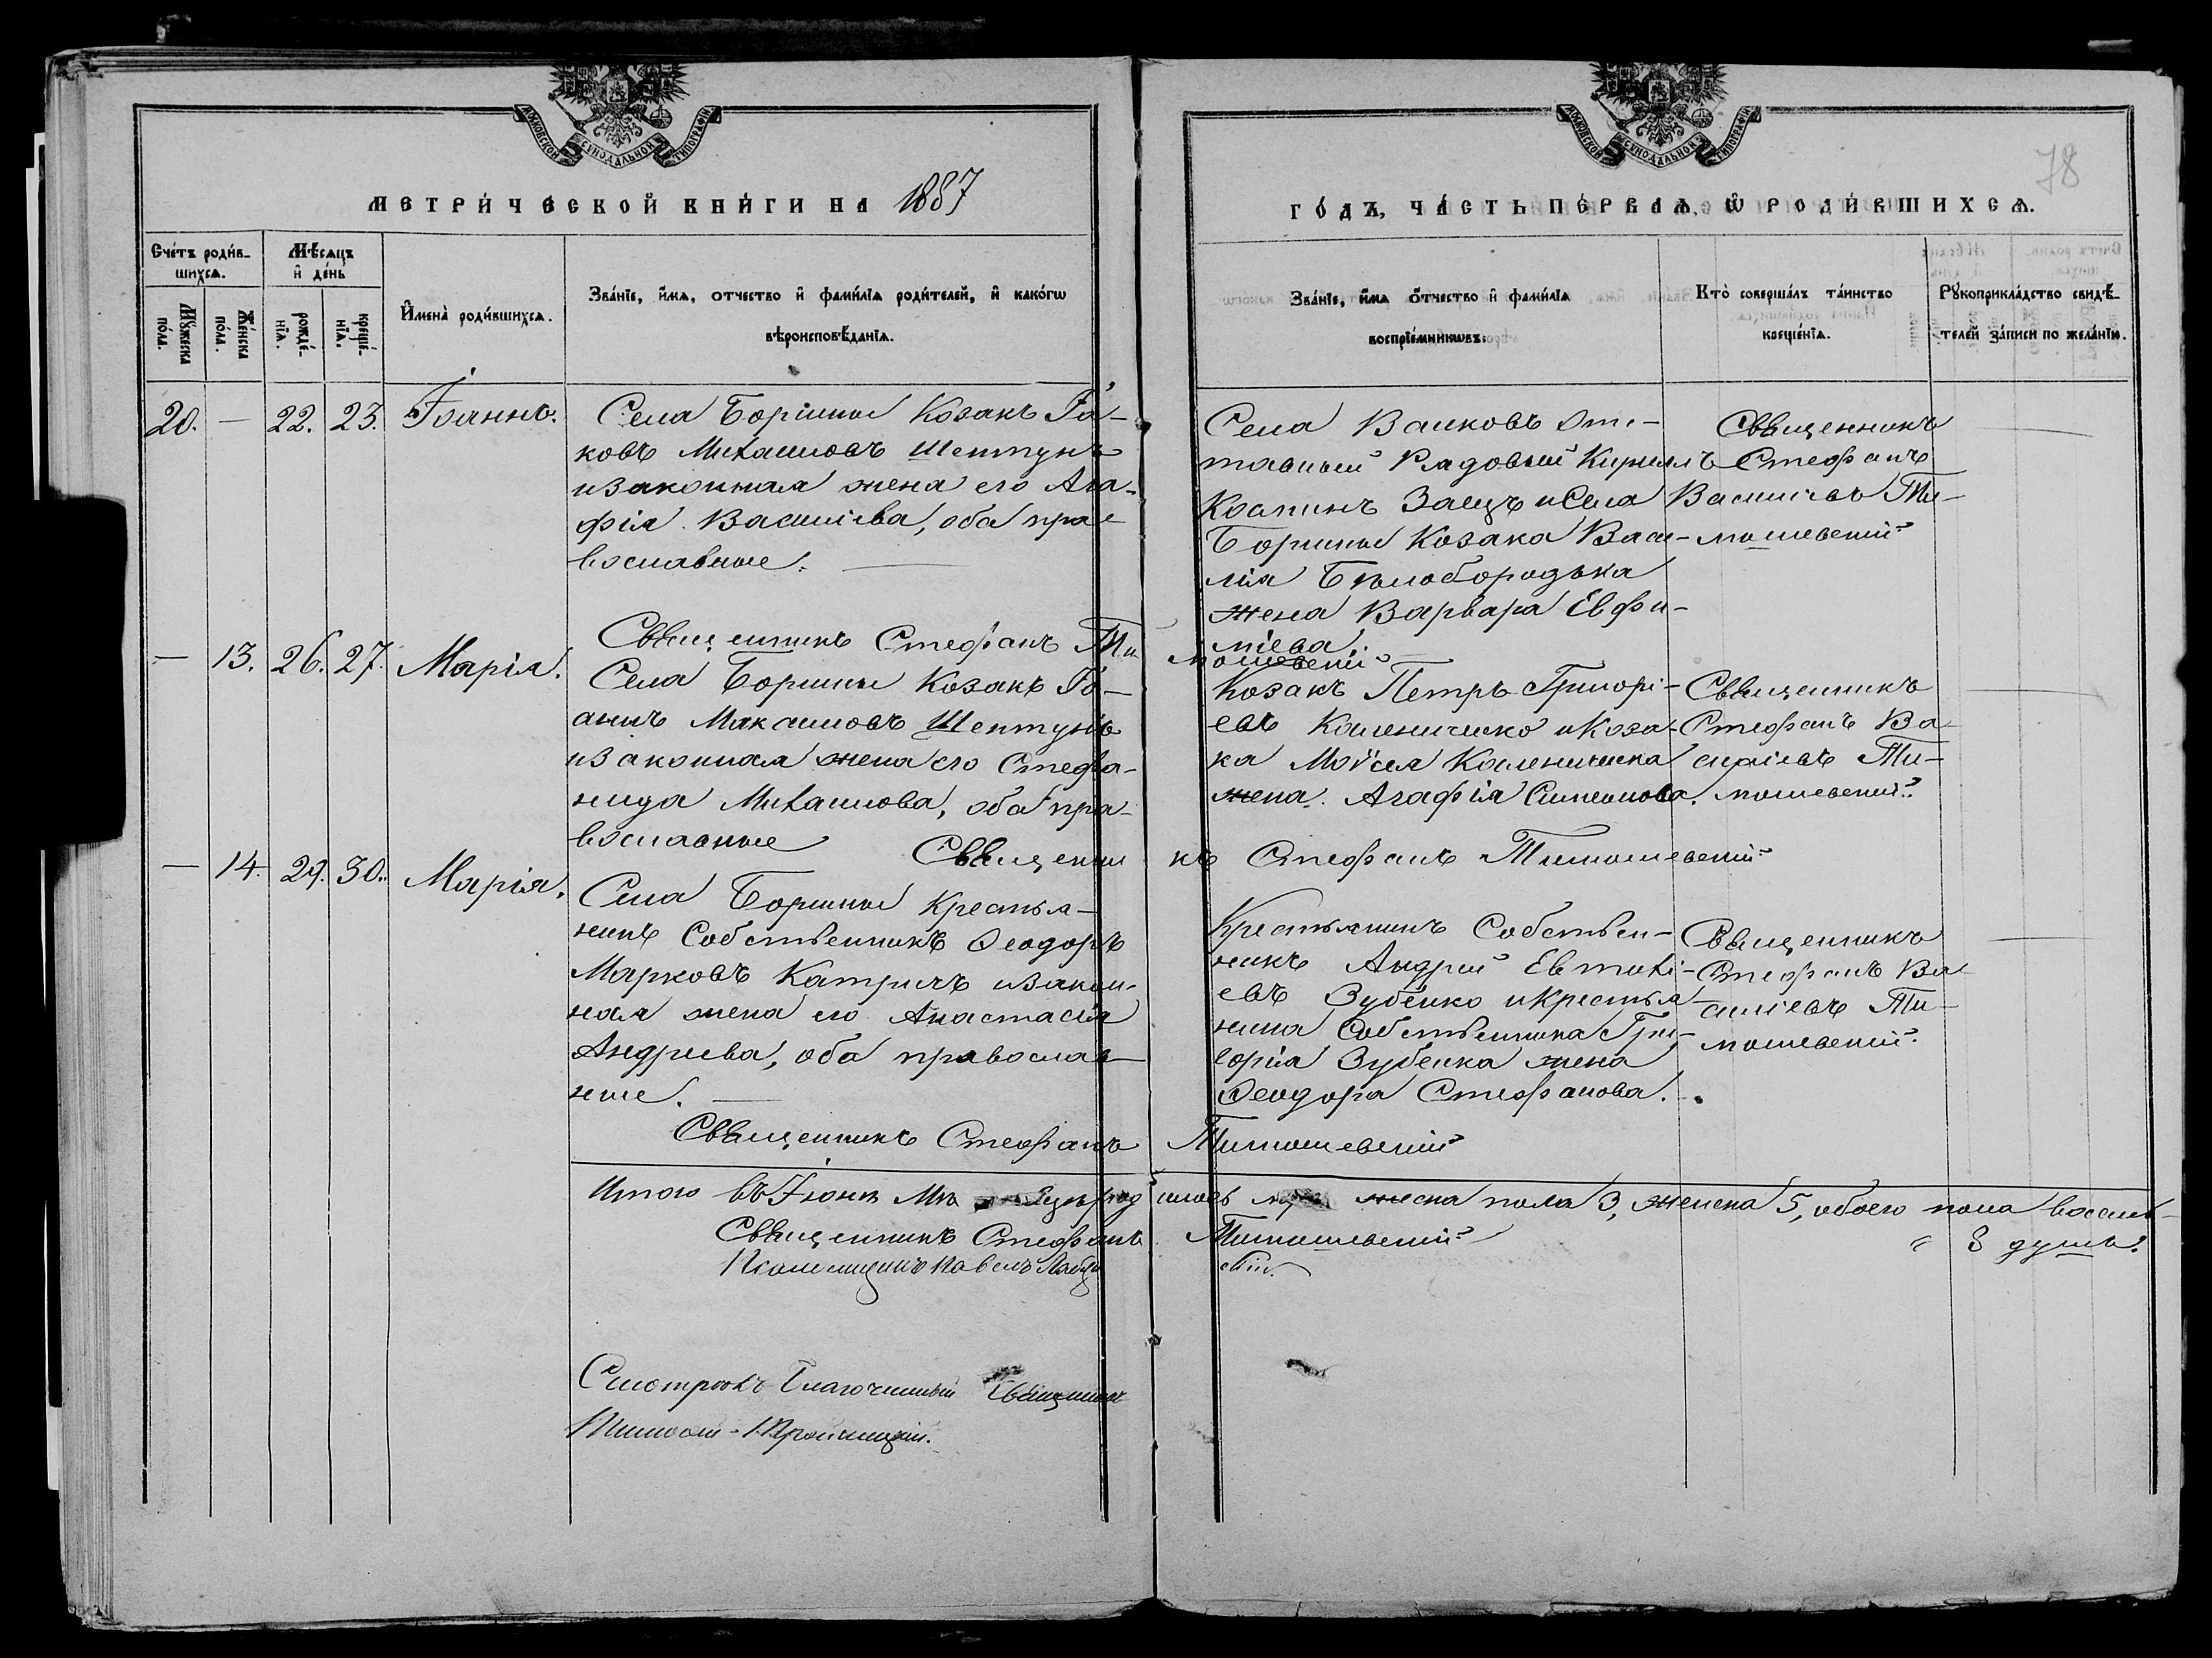 МОСКОВСКОЙ СѴНОДАЛЬНОЙ ТИПОГРАФІИ
МОСКОВСКОЙ СѴНОДАЛЬНОЙ ТИПОГРАФІИ
78
МЕТРИ́ЧЕСКОЙ КНИ́ГИ НА 1887
ГО́ДЪ, ЧА́СТЬ ПЕ́РВАѦ, Ѡ РОДИ́ВШИХСѦ.
Сче́тъ роди́в-
шихсѧ.
Мѣ́сѧцъ
и҆ де́нь
Му́жеска
по́ла.
Же́нска
по́ла.
рожде́-
нїѧ.
креще́-
нїѧ.
И҆мена̀ роди́вшихсѧ.
Зва́нїе, и҆́мѧ, о҆́тчество и҆ фами́лїѧ роди́телей, и҆ како́гѡ
вѣроисповѣ́данїѧ.
Зва́нїе, и҆́мѧ о҆́тчество и҆ фами́лїѧ
воспрїе́мникѡвъ.
Кто̀ соверша́лъ та́инство
креще́нїѧ.
Рꙋкоприкла́дство свидѣ́-
телей за́писи по жела́нїю.
20. — 22. 23. Іоаннъ.
Села Боришпол Козакъ Іа-
ковъ Михаиловъ Шептунъ
и законная жена его Ага-
фія Василіева, оба пра-
вославные.
Села Вол­ковъ Отс-
тавный Рядовый Кириллъ
Заецъ и Села
Козака Васи-
лія Бѣлобородька
жена Варвара Евфи-
міева.
Священникъ
Стефанъ
Василіевъ Ти-
мошевскій
Священникъ Стефанъ Тимошевскій
— 13. 26. 27. Марія.
Села Козакъ Іо-
аннъ Максимовъ Шептунъ
и законная жена его Стефа-
нида Михаилова, оба пра-
вославные
Козакъ Петръ Григорі-
евъ Калениченко и Коза-
ка Моѵсея Каленичика
жена Агафія Симеонова.
Священникъ
Стефанъ Ва-
силіевъ Ти-
мошевскій.
Священникъ Стефанъ Тимошевскій
— 14. 29. 30. Марія.
Села Крестья-
нинъ Собственникъ Ѳеодоръ
Марковъ Катричъ и закон-
ная жена его Анастасія
Андреева, оба православ-
ные.
Крестьянинъ Собствен-
никъ Андрей Евтихі-
евъ Зубенко и Крестья-
нина Собственника Гри-
горія Зубенка жена
Ѳеодора Стефанова.
Священникъ
Стефанъ Ва-
силіевъ Ти-
мошевскій.
Священникъ Стефанъ Тимошевскій
Итого въ Іюнѣ Мѣсяцѣ родилось мужеска пола 3, женска 5, обоего пола восемь
8 душъ.
Священникъ Стефанъ Тимошевскій
Псаломщикъ Павелъ
Смотрѣлъ Благочинный Священникъ